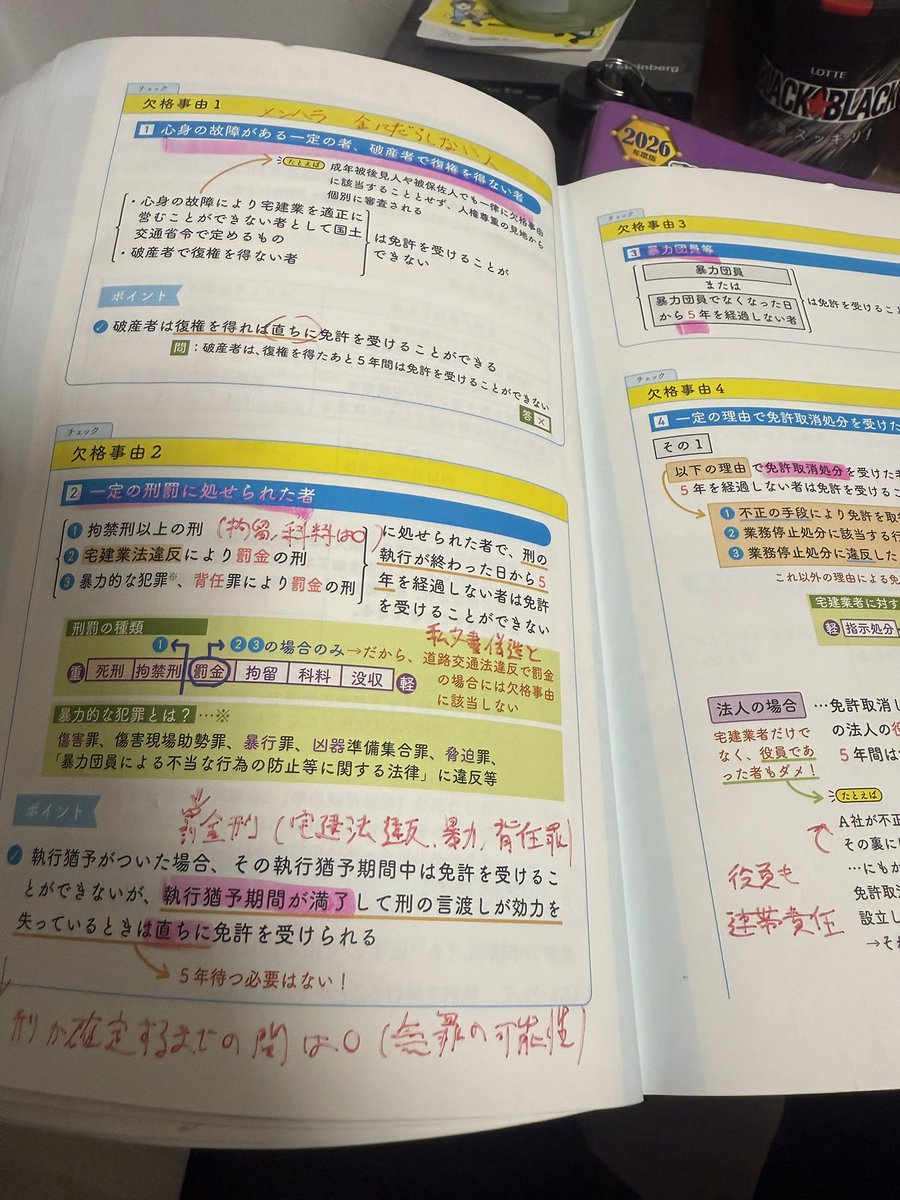 steinberg
LOTTE
BLACK BLACK
スッキリ!
2026
年度版
チェック
欠格事由1
メンヘラ 金にだらしない人
1 心身の故障がある一定の者、破産者で復権を得ない者
たとえば 成年被後見人や被保佐人でも一律に欠格事由
に該当することとせず、人権尊重の見地から
個別に審査される
・心身の故障により宅建業を適正に
営むことができない者として国土
交通省令で定めるもの
・破産者で復権を得ない者
は免許を受けることが
できない
ポイント
破産者は復権を得れば直ちに免許を受けることができる
問:破産者は、復権を得たあと5年間は免許を受けることができない
答 ×
チェック
欠格事由2
2 一定の刑罰に処せられた者
1 拘禁刑以上の刑 (拘留,科料は○)
2 宅建業法違反により罰金の刑
3 暴力的な犯罪※、背任罪により罰金の刑
に処せられた者で、刑の
執行が終わった日から5
年を経過しない者は免許
を受けることができない
刑罰の種類
1 2 3の場合のみ→だから、道路交通法違反で罰金
の場合には欠格事由
に該当しない
私文書偽造と
重 死刑 拘禁刑 罰金 拘留 科料 没収 軽
暴力的な犯罪とは?…※
傷害罪、傷害現場助勢罪、暴行罪、凶器準備集合罪、脅迫罪、
「暴力団員による不当な行為の防止等に関する法律」に違反等
ポイント
罰金刑(宅建法違反,暴力,背任罪)
執行猶予がついた場合、その執行猶予期間中は免許を受けるこ
とができないが、執行猶予期間が満了して刑の言渡しが効力を
失っているときは直ちに免許を受けられる
5年待つ必要はない!
刑が確定するまでの間は○(無罪の可能性)
チェック
欠格事由3
3 暴力団員等
暴力団員
または
暴力団員でなくなった日
から5年を経過しない者
は免許を受けること
チェック
欠格事由4
4 一定の理由で免許取消処分を受けた
その1
以下の理由で免許取消処分を受けた者
5年を経過しない者は免許を受けるこ
1 不正の手段により免許を取
2 業務停止処分に該当する行
3 業務停止処分に違反した
これ以外の理由による免
宅建業者に対す
軽 指示処分
法人の場合
…免許取消し
の法人の役
5年間は
宅建業者だけで
なく、役員であ
った者もダメ!
たとえば
A社が不正
その裏に
…にもか
免許取消
設立し
→それ
役員も
連帯責任